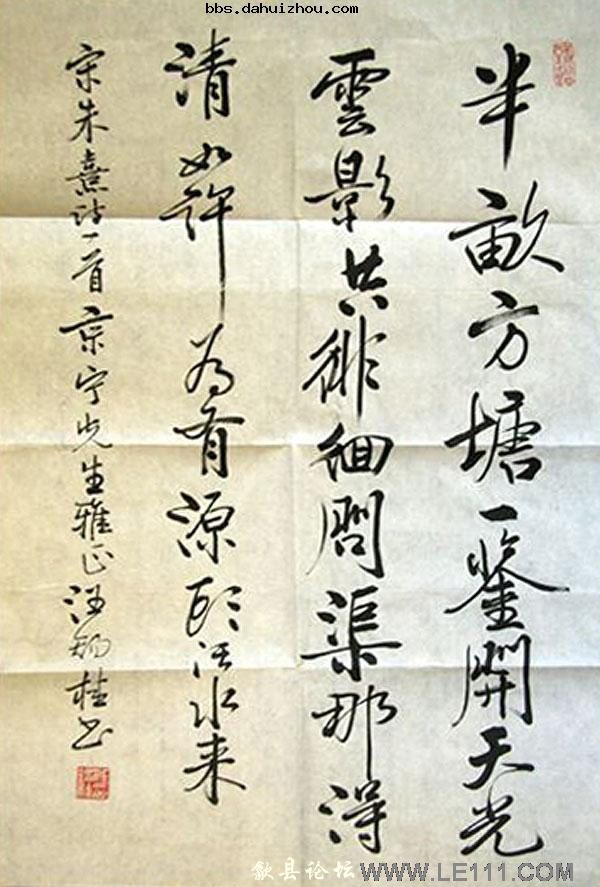 bbs.dahuizhou.com
半畝方塘一鑒開天光
雲影共徘徊問渠那得
清如許为有源頭活水来
宋朱熹诗一首京宁先生雅正汪桂书
歙县论坛
WWW.LE111.COM